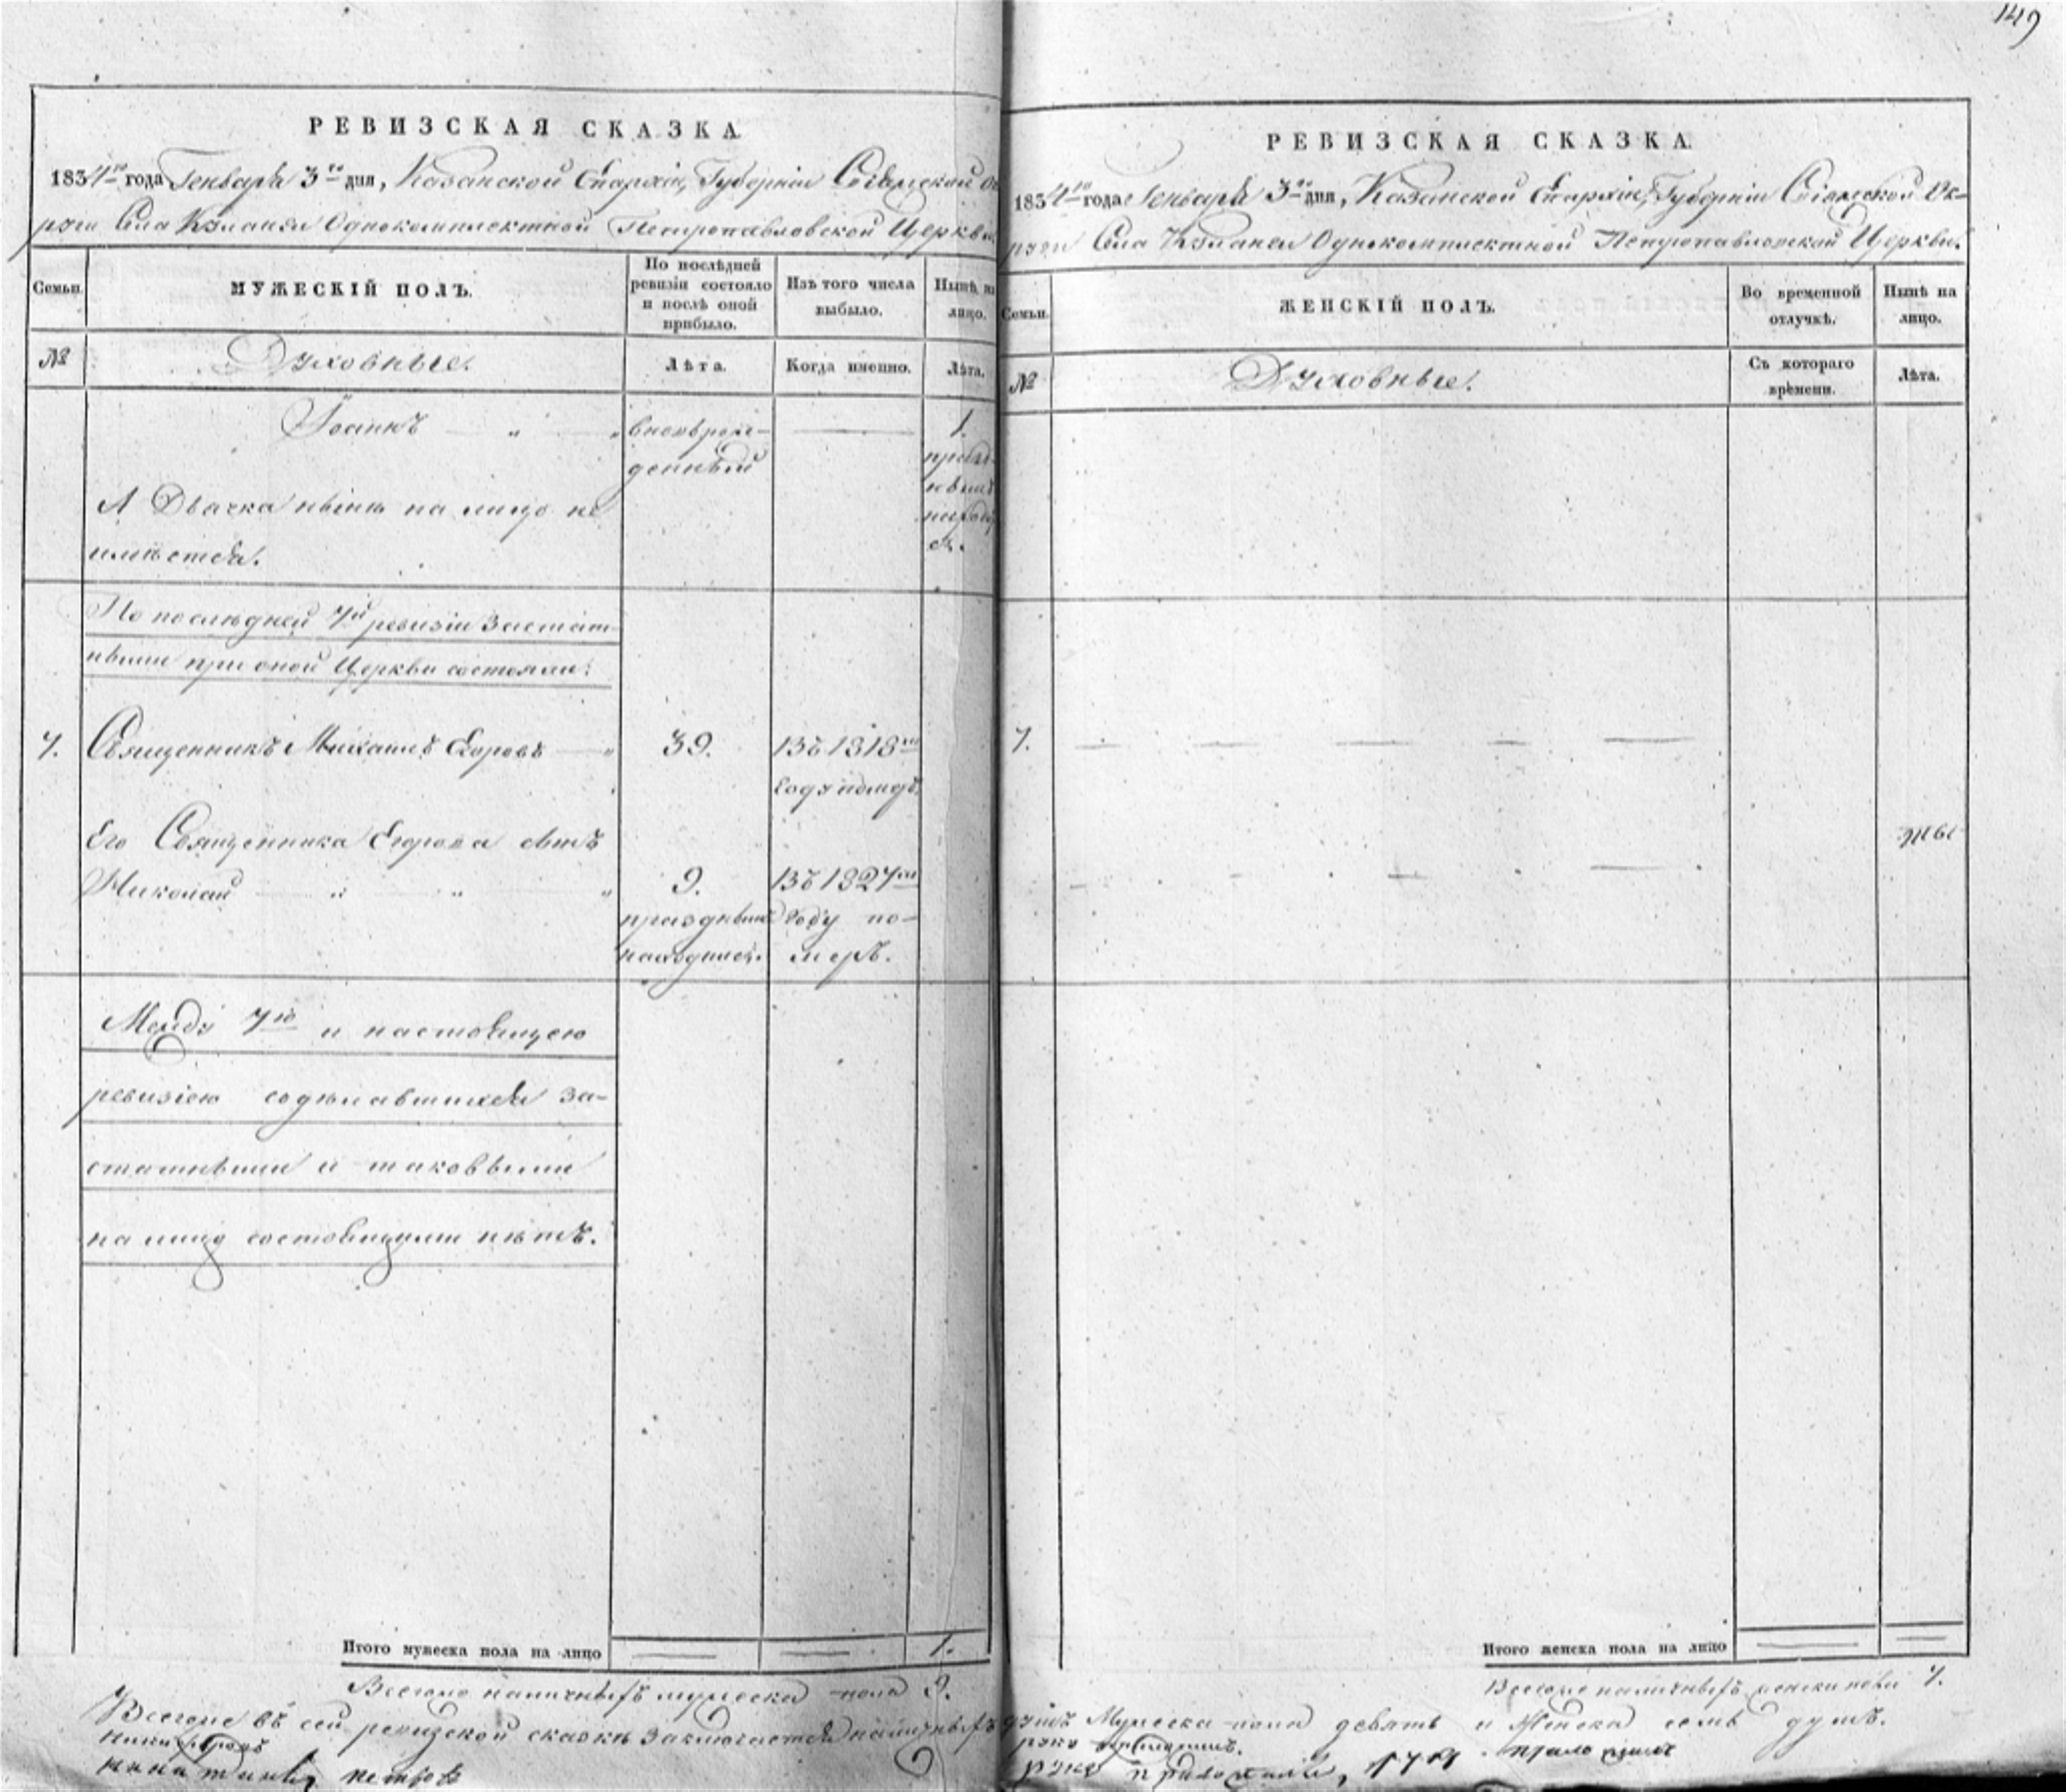 149
РЕВИЗСКАЯ СКАЗКА
1834го года Генваря 3го дня, Казанской Епархіи, Губерніи Свіяжской Ок-
руги Села Кулангѣ Однокомплектной Петропавловской Церкви.
Семьи.
МУЖЕСКІЙ ПОЛЪ.
По послѣдней
ревизіи состояло
и послѣ оной
прибыло.
Изъ того числа
выбыло.
Нынѣ на
лицо.
№
Духовные.
Лѣта.
Когда именно.
Лѣта.
Іоаннъ
вновьрож-
денный
1.
А Дьячка нынѣ на лицо не
имѣется.
По послѣдней 7й ревизіи Заштат-
ными при оной Церкви состояли:
7. Священникъ Михаилъ Егоровъ 39. Въ 1818м
году
Его Священника Егорова сынъ
Николай 9. Въ 1827м
празднымъ году по-
находился. меръ.
Между 7ю и настоящею
ревизіею содѣлавшихся за-
штатными и таковыми
на лицо состоящихъ нѣтъ.
Итого мужеска пола на лицо 1.
Всегоже наличныхъ мужеска пола 9.
РЕВИЗСКАЯ СКАЗКА
1834го года Генваря 3го дня, Казанской Епархіи, Губерніи Свіяжской Ок-
руги Села Кулангѣ Однокомплектной Петропавловской Церкви.
Семьи.
ЖЕНСКІЙ ПОЛЪ.
Во временной
отлучкѣ.
Нынѣ на
лицо.
№
Духовные.
Съ котораго
времени.
Лѣта.
7.
Итого женска пола на лицо
Всегоже наличныхъ женска пола 7.
Всегоже въ сей ревизской сказкѣ Заключается наличныхъ душъ Мужеска пола девять и Женска семь душъ.
Петровъ
руку приложилъ